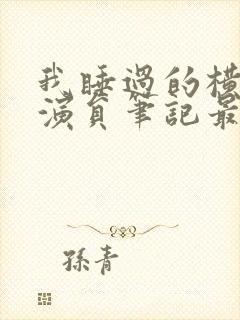 我睡過的橫
演員筆記最
孫青